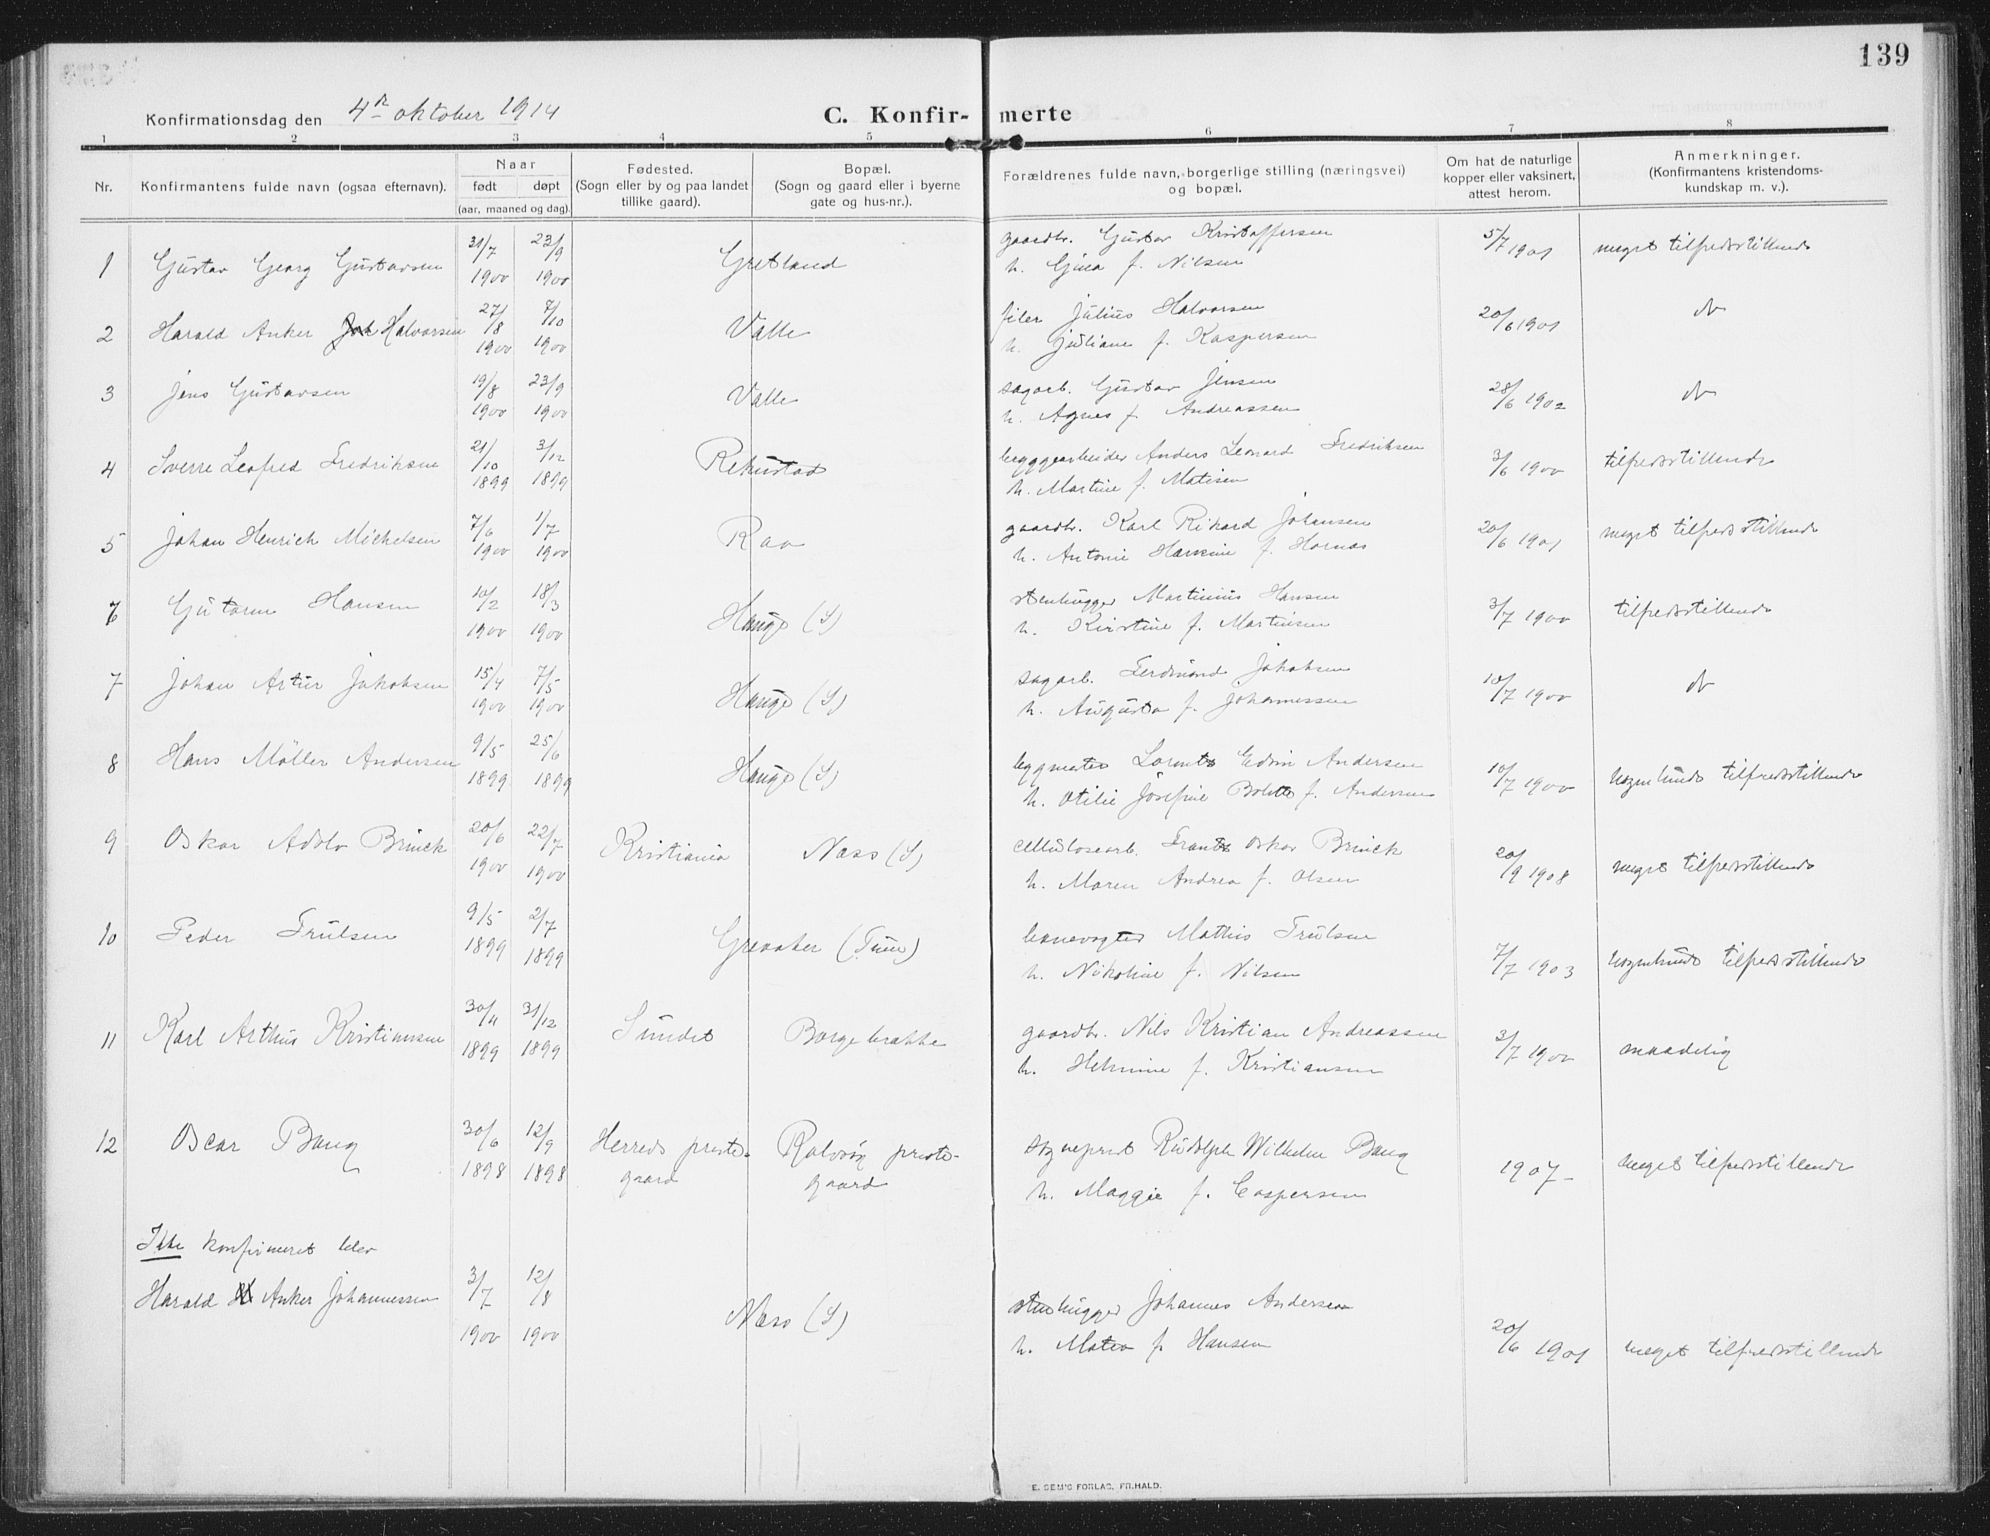 139
Konfirmationsdag den 4de oktober 1914
C. Konfir- merte
1 2 3 4 5 6 7 8
Nr. Konfirmantens fulde navn (ogsaa efternavn). Naar født døpt (aar, maaned og dag). Fødested. (Sogn eller by og paa landet tillike gaard). Bopæl. (Sogn og gaard eller i byerne gate og hus-nr.). Forældrenes fulde navn, borgerlige stilling (næringsvei) og bopæl. Om hat de naturlige kopper eller vaksinert, attest herom. Anmerkninger. (Konfirmantens kristendoms- kundskap m. v.).
1 Gustav Georg Gustavsen 31/7 1900 23/9 1900 Gretland gaardbr. Gustav Kristoffersen 5/7 1901 meget tilfredsstillende
h. Gina f. Nilsen
2 Harald Anker Joh Halvorsen 27/8 1900 7/10 1900 Valle filer Julius Halvorsen 20/6 1901 do
h. Juliane f. Kaspersen
3 Jens Gustavsen 19/8 1900 23/9 1900 Valle sagarb. Gustav Jensen 28/6 1902 do
h. Agnes f. Andreassen
4 Sverre Leofred Fredriksen 21/10 1899 3/12 1899 Rekustad byggearbeider Anders Leonard Fredriksen 3/6 1900 tilfredsstillende
h. Martine f. Matisen
5 Johan Henrich Mickelsen 7/6 1900 1/7 1900 Raa gaardbr. Karl Rikard Johansen 20/6 1901 meget tilfredsstillende
h. Antonie f. Hornæs
6 Gutorm Hansen 10/2 1900 18/3 1900 Hauge (S) stenhugger Martinius Hansen 3/7 1900 tilfredsstillende
h. Kirstine f. Martinsen
7 Johan Artur Jakobsen 15/4 1900 7/5 1900 Hauge (S) sagarb. Ferdinand Jakobsen 10/7 1900 do
h. Augusta f. Johannessen
8 Hans Møller Andersen 9/5 1899 25/6 1899 Hauge (S) bygmester Lorents Edvin Andersen 10/7 1900 nogenlunde tilfredsstillende
h. Otilie Josefine Bolette f. Andersen
9 Oskar Adolv Brinck 20/6 1900 22/7 1900 Kristiania Næss (S) cellulosearb. Frants Oskar Brinck 20/9 1908 meget tilfredsstillende
h. Maren Andrea f. Olsen
10 Peder Trulsen 9/5 1899 2/7 1899 Greaaker (Tune) banevogter Mathis Trulsen 7/7 1903 nogenlunde tilfredsstillende
h. Nikoline f. Nilsen
11 Karl Arthur Kristiansen 30/11 1899 31/12 1899 Sundet Borgebrakke gaardbr. Nils Kristian Andreassen 3/7 1900 maadelig
h. Helmine f. Kristiansen
12 Oscar Bang 30/6 1898 12/9 1898 Herreds preste- gaard Rolvsøy preste- gaard sogneprest Rudolph Wilhelm Bang 1907 - meget tilfredsstillende
h. Maggie f. Caspersen
Ikke konfirmeret blev
Harald H Anker Johannessen 3/7 1900 12/8 1900 Næss (S) stenhugger Johannes Andersen 20/6 1901 meget tilfredsstillende
h. Matea f. Hansen
E. SEM'S FORLAG, FR.HALD.